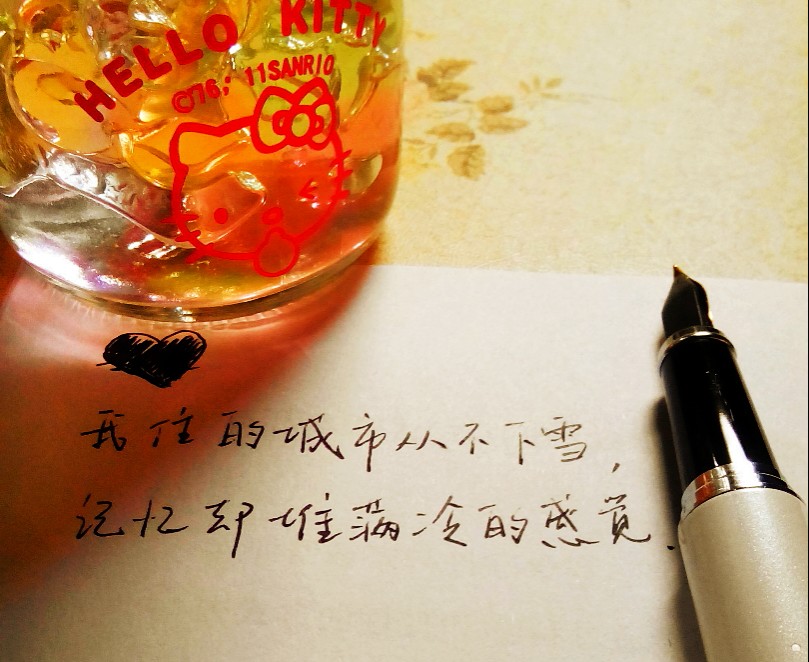 HELLO KITTY
©'76; 11SANRIO
我住的城市从不下雪，
记忆却堆满冷的感觉.